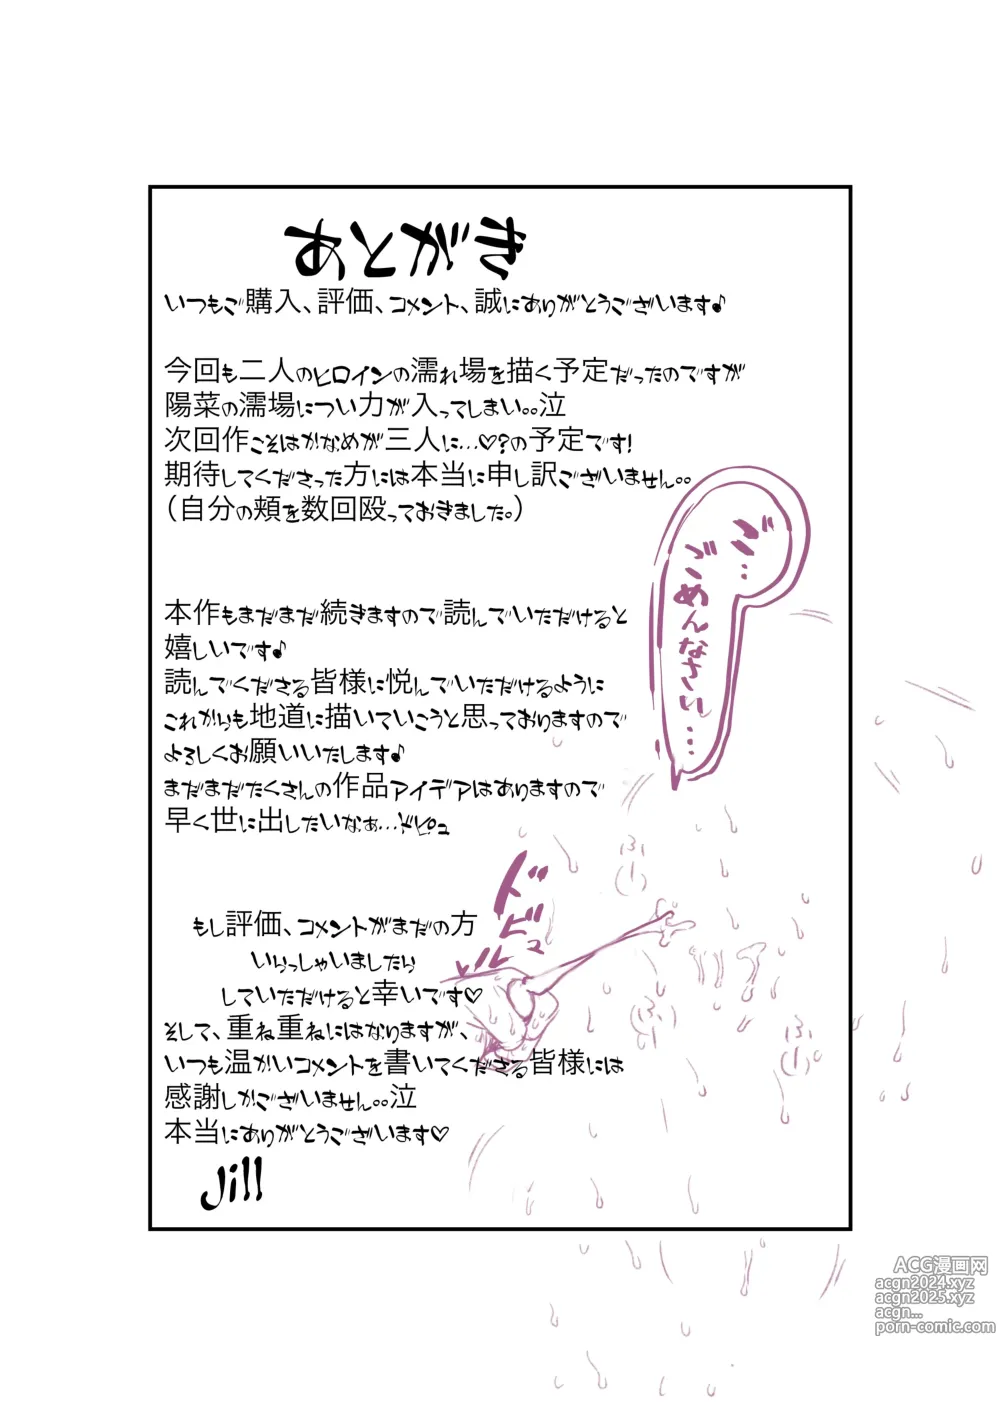 あとがき
いつもご購入、評価、コメント、誠にありがとうございます♪
今回も二人のヒロインの濡れ場を描く予定だったのですが
陽菜の濡場につい力が入ってしまい。。泣
次回作こそはかなめが三人に…♡?の予定です!
期待してくださった方には本当に申し訳ございません。。
(自分の頬を数回殴っておきました。)
ご…
ごめんなさいぃ…
本作もまだまだ続きますので読んでいただけると
嬉しいです♪
読んでくださる皆様に悦んでいただけるように
これからも地道に描いていこうと思っておりますので
よろしくお願いいたします♪
まだまだたくさんの作品アイデアはありますので
早く世に出したいなぁ…ドピュ
ドピュ
ふー
もし評価、コメントがまだの方
いらっしゃいましたら
していただけると幸いです♡
ふー
ふー
そして、重ね重ねにはなりますが、
いつも温かいコメントを書いてくださる皆様には
感謝しかございません。。泣
本当にありがとうございます♡
Jill
ACG漫画网
acgn2024.xyz
acgn2025.xyz
acgn...
porn-comic.com